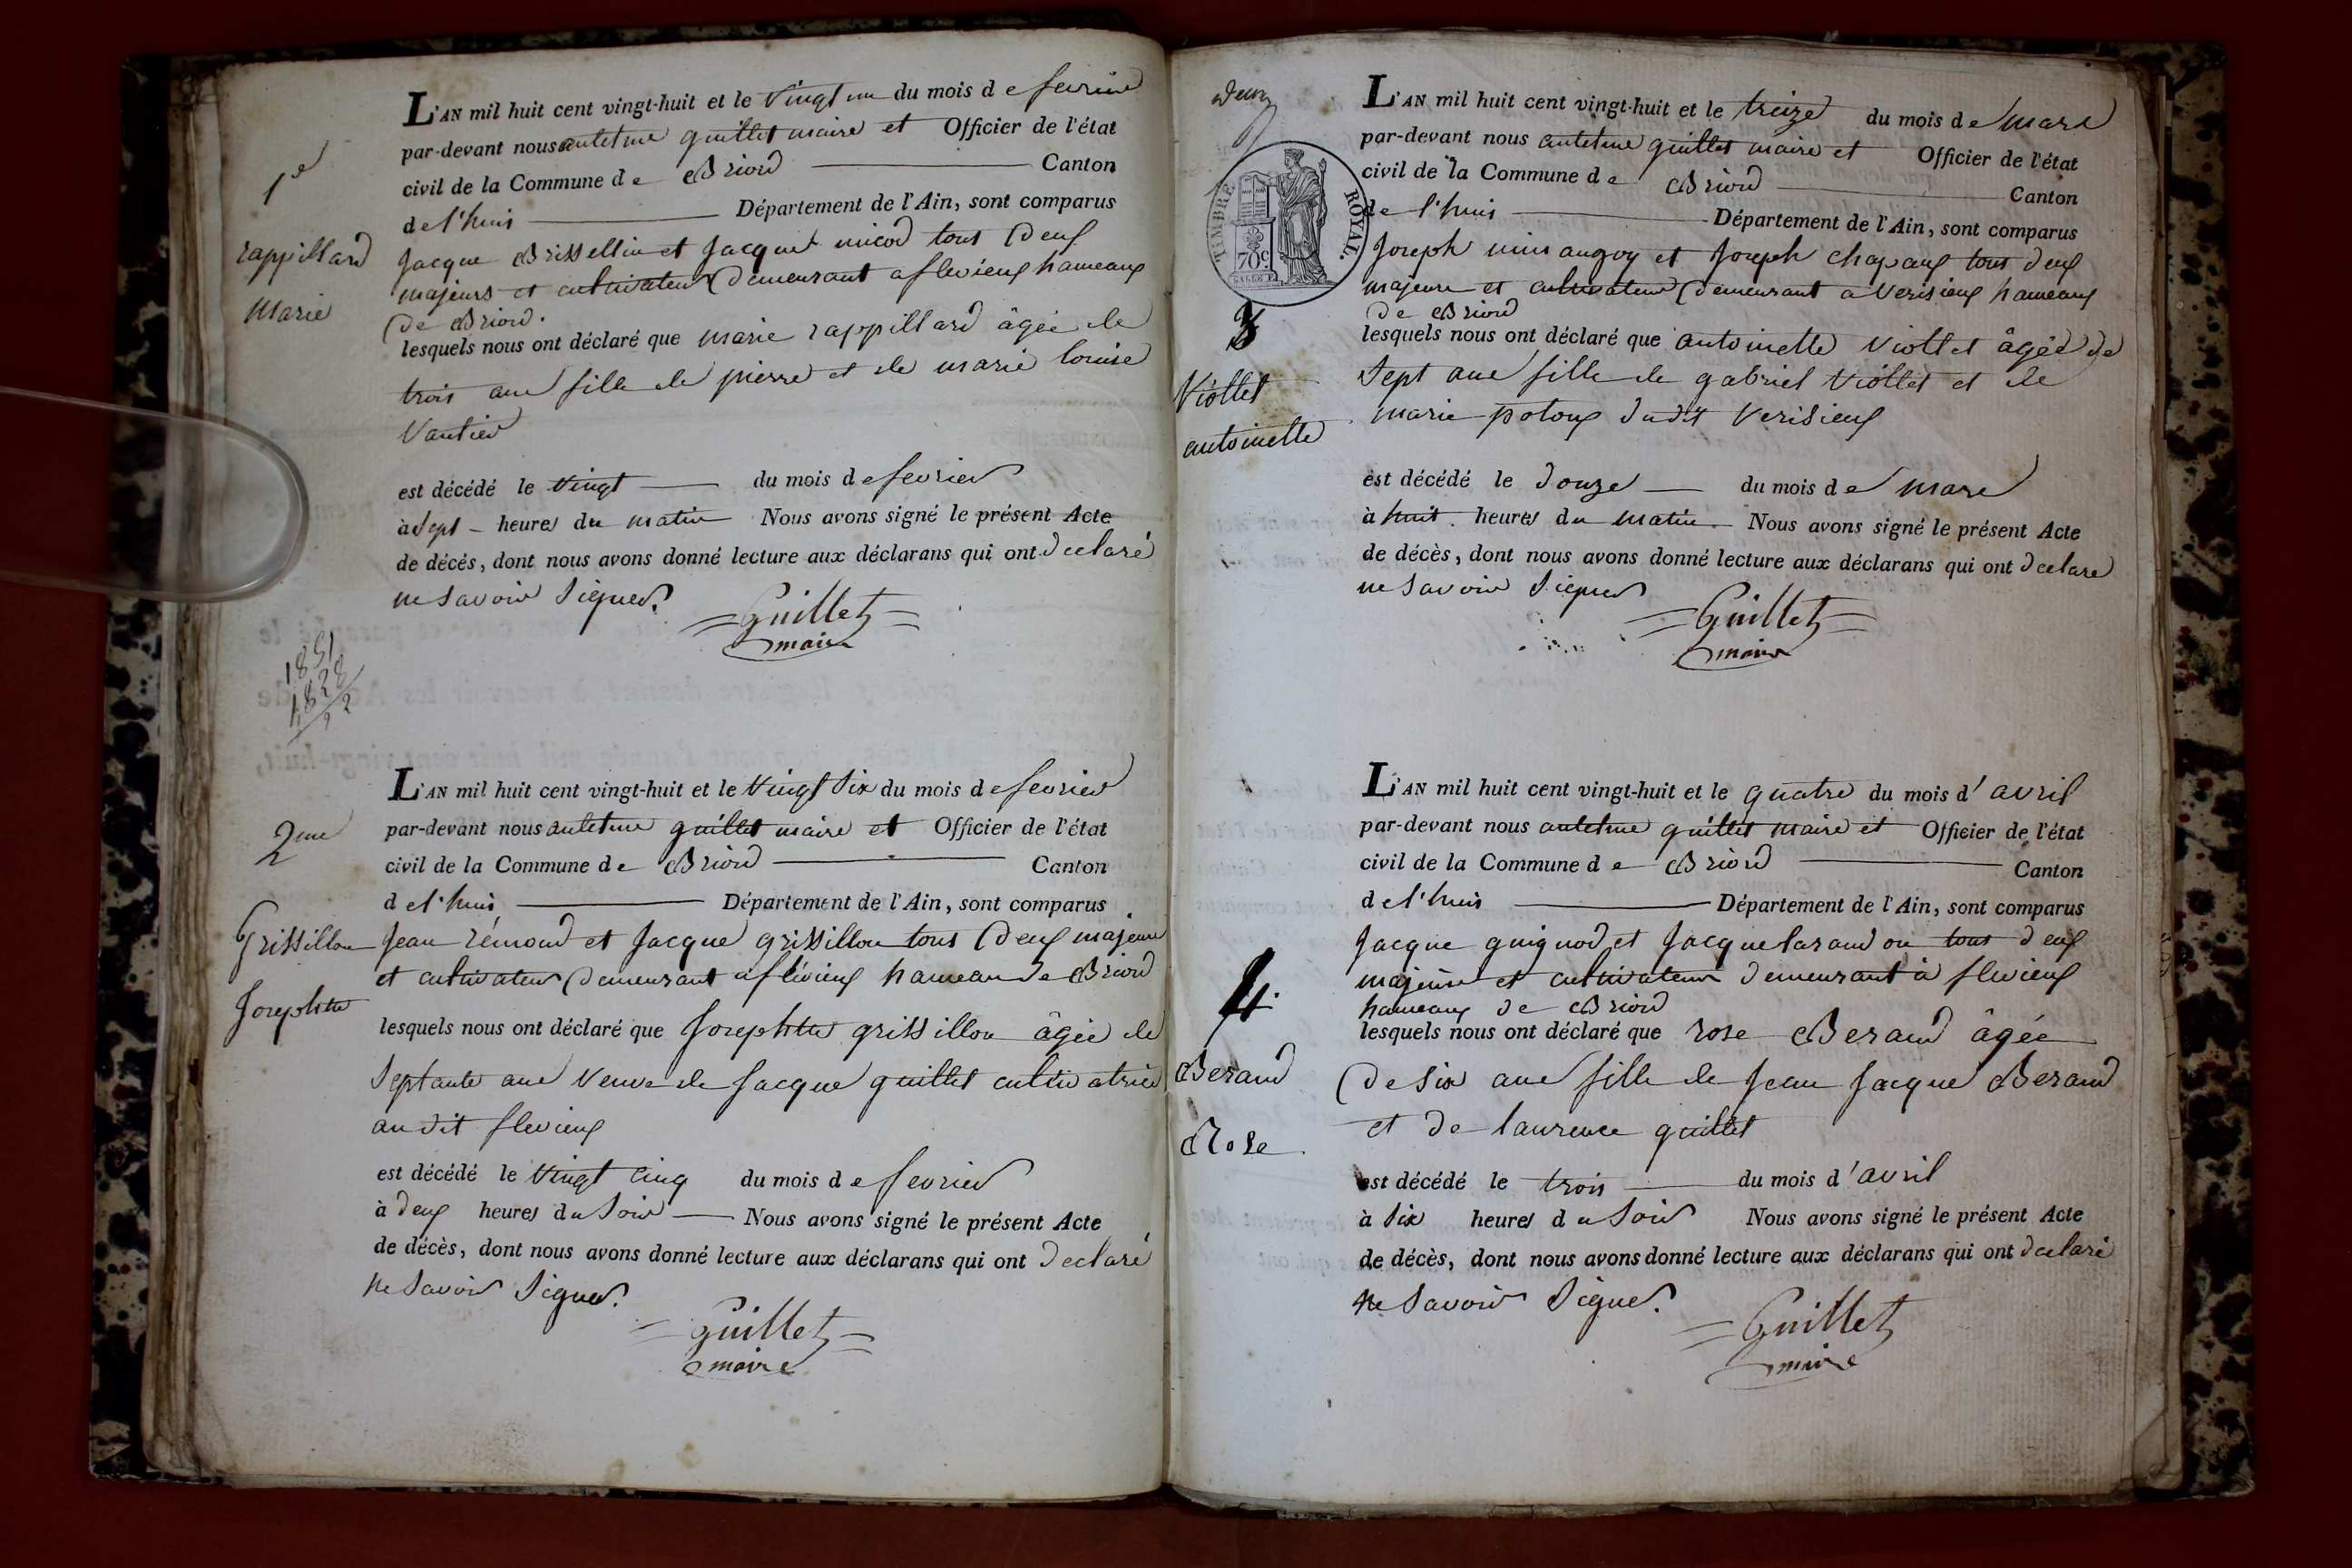 L'AN mil huit cent vingt-huit et le vingt un du mois de fevrier
par-devant nous antelme guillet maire et Officier de l'état
civil de la Commune de Briord Canton
de l'huis Département de l'Ain, sont comparus
1e
rappillard
Marie
Jacque Brissellin et Jacque micod tous deux
majeurs et cultivateur demeurant a flevieux hameaux
de Briord.
lesquels nous ont déclaré que marie rappillard âgée de
trois ans fille de pierre et de marie louise
Vautier
est décédé le vingt du mois de fevrier
à sept heures du matin Nous avons signé le présent Acte
de décés, dont nous avons donné lecture aux déclarans qui ont declaré
ne savoir signer.
Guillet
maire
1851
1828
22
L'AN mil huit cent vingt-huit et le vingt six du mois de fevrier
2me
par-devant nous antelme guillet maire et Officier de l'état
civil de la Commune de Briord Canton
de l'huis Département de l'Ain, sont comparus
Grissillon
Josephte
Jean rémond et Jacque grissillon tous deux majeurs
et cultivateur demeurant a flévieux hameau de Briord
lesquels nous ont déclaré que Josephte grissillon âgée de
septante ans veuve de Jacque guillet cultivatrice
au dit flevieux
est décédé le vingt cinq du mois de fevrier
à deux heures du soir Nous avons signé le présent Acte
de décès, dont nous avons donné lecture aux déclarans qui ont declaré
ne savoir signer.
Guillet
maire
deux
TIMBRE ROYAL.
70c
L'AN mil huit cent vingt-huit et le treize du mois de mars
par-devant nous antelme guillet maire et Officier de l'état
civil de la Commune de Briord Canton
de l'huis Département de l'Ain, sont comparus
3
Viollet
antoinette
Joseph et Joseph chapaux tous deux
majeurs et cultivateur demeurant a verisieux hameaux
de Briord
lesquels nous ont déclaré que antoinette viollet âgée de
sept ans fille de gabriel viollet et de
marie poloux dudit verisieux
est décédé le douze du mois de mars
à huit heures du matin Nous avons signé le présent Acte
de décès, dont nous avons donné lecture aux déclarans qui ont declaré
ne savoir signer
Guillet
maire
L'AN mil huit cent vingt-huit et le quatre du mois d'avril
par-devant nous antelme guillet maire et Officier de l'état
civil de la Commune de Briord Canton
de l'huis Département de l'Ain, sont comparus
4.
Beraud
Rose
Jacque guignod et Jacque tous deux
majeurs et cultivateur demeurant à flevieux
hameaux de Briord
lesquels nous ont déclaré que rose Beraud âgée
de six ans fille de Jean Jacque Beraud
et de laurence guillet
est décédé le trois du mois d'avril
à six heures du soir Nous avons signé le présent Acte
de décès, dont nous avons donné lecture aux déclarans qui ont declaré
ne savoir signer.
Guillet
maire